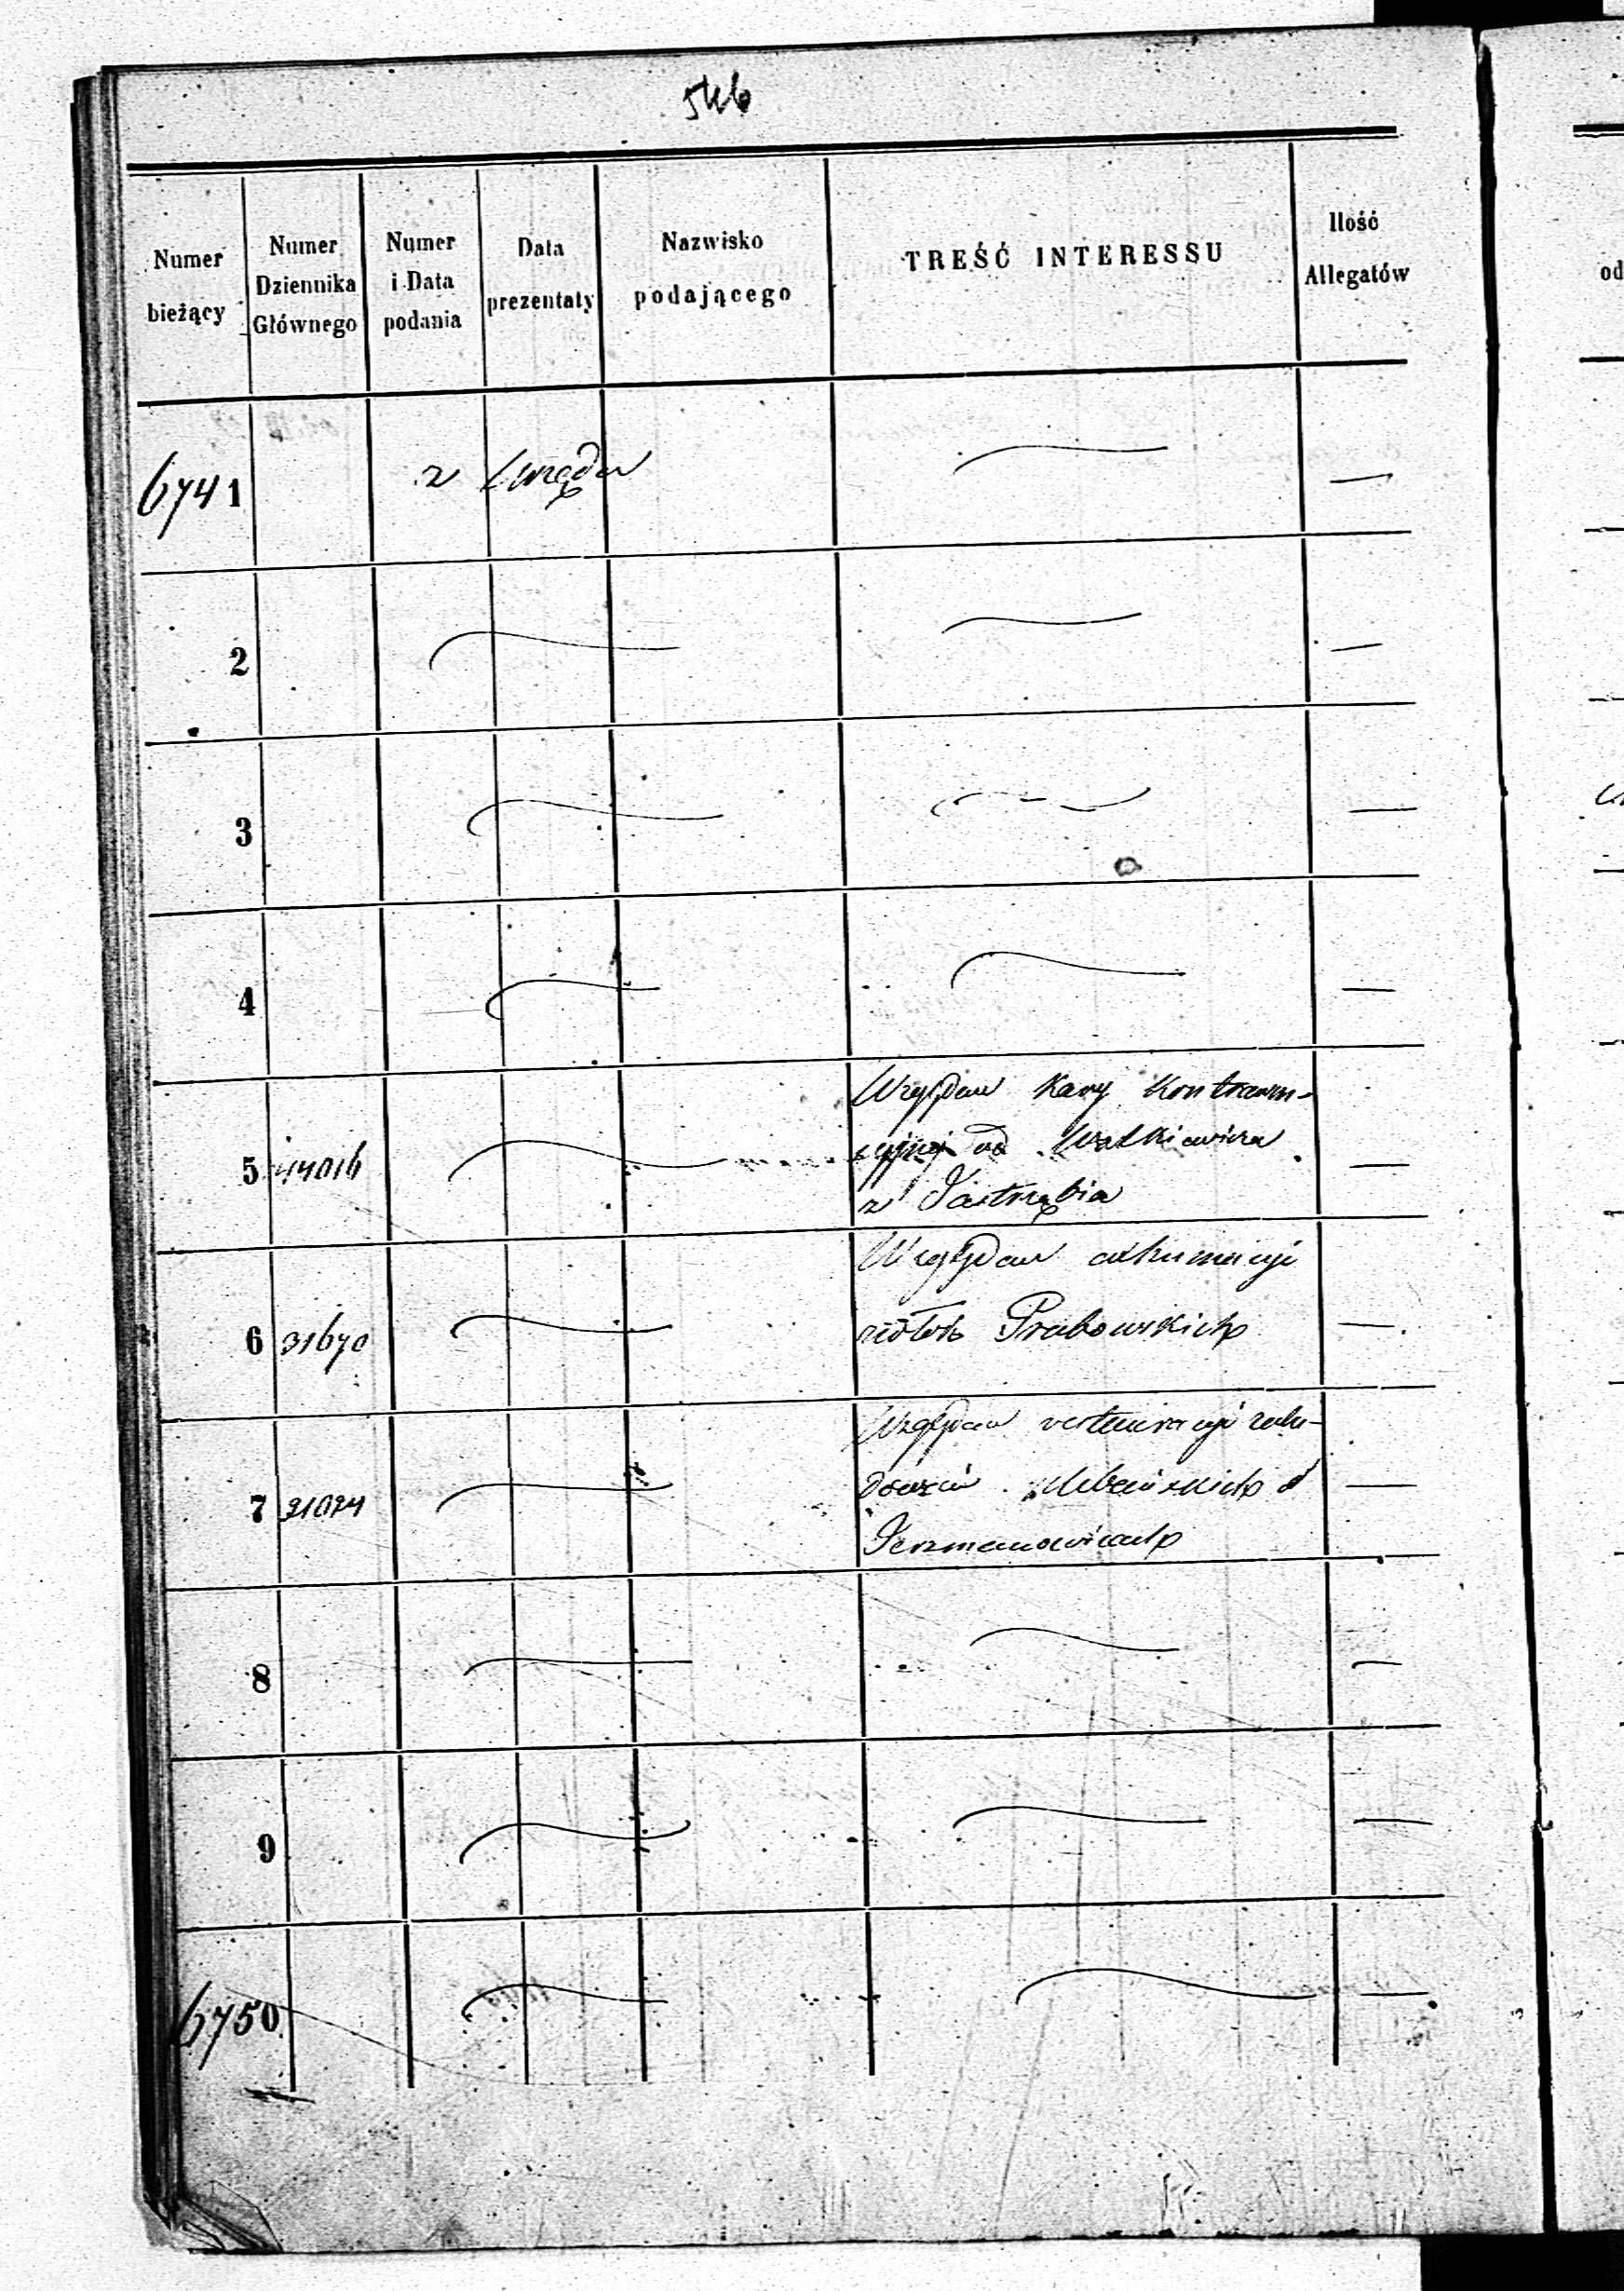 546
Numer bieżący
Numer Dziennika Głównego
Numer i Data podania
Data prezentaty
Nazwisko podającego
TREŚĆ INTERESSU
Ilość Allegatów
6741 z Urzędu —
2 —
3 —
4 —
5 44016 Względem Kary Kontrawen-
cyjnej od
z Jastrzębia —
6 31670 Względem
—
7 31024 Względem
—
8 —
9 —
6750 —